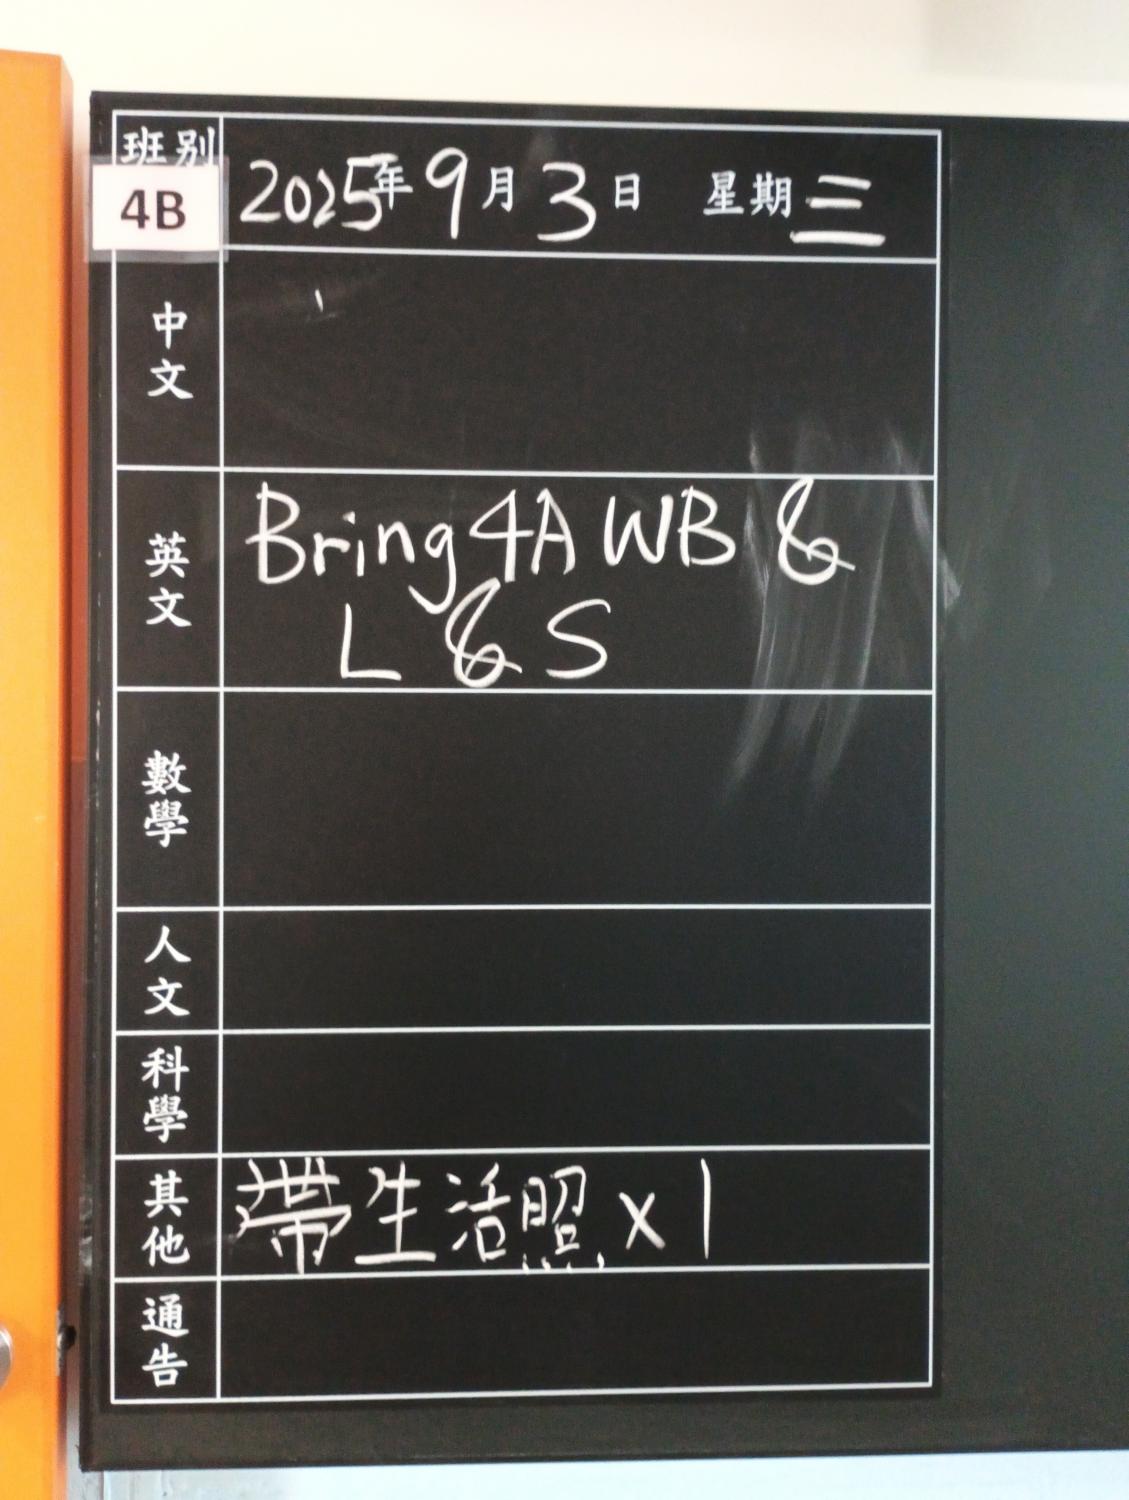 班別
4B
2025年9月3日 星期三
中文
英文
Bring 4A WB &
L & S
數學
人文
科學
其他
帶生活照 x 1
通告